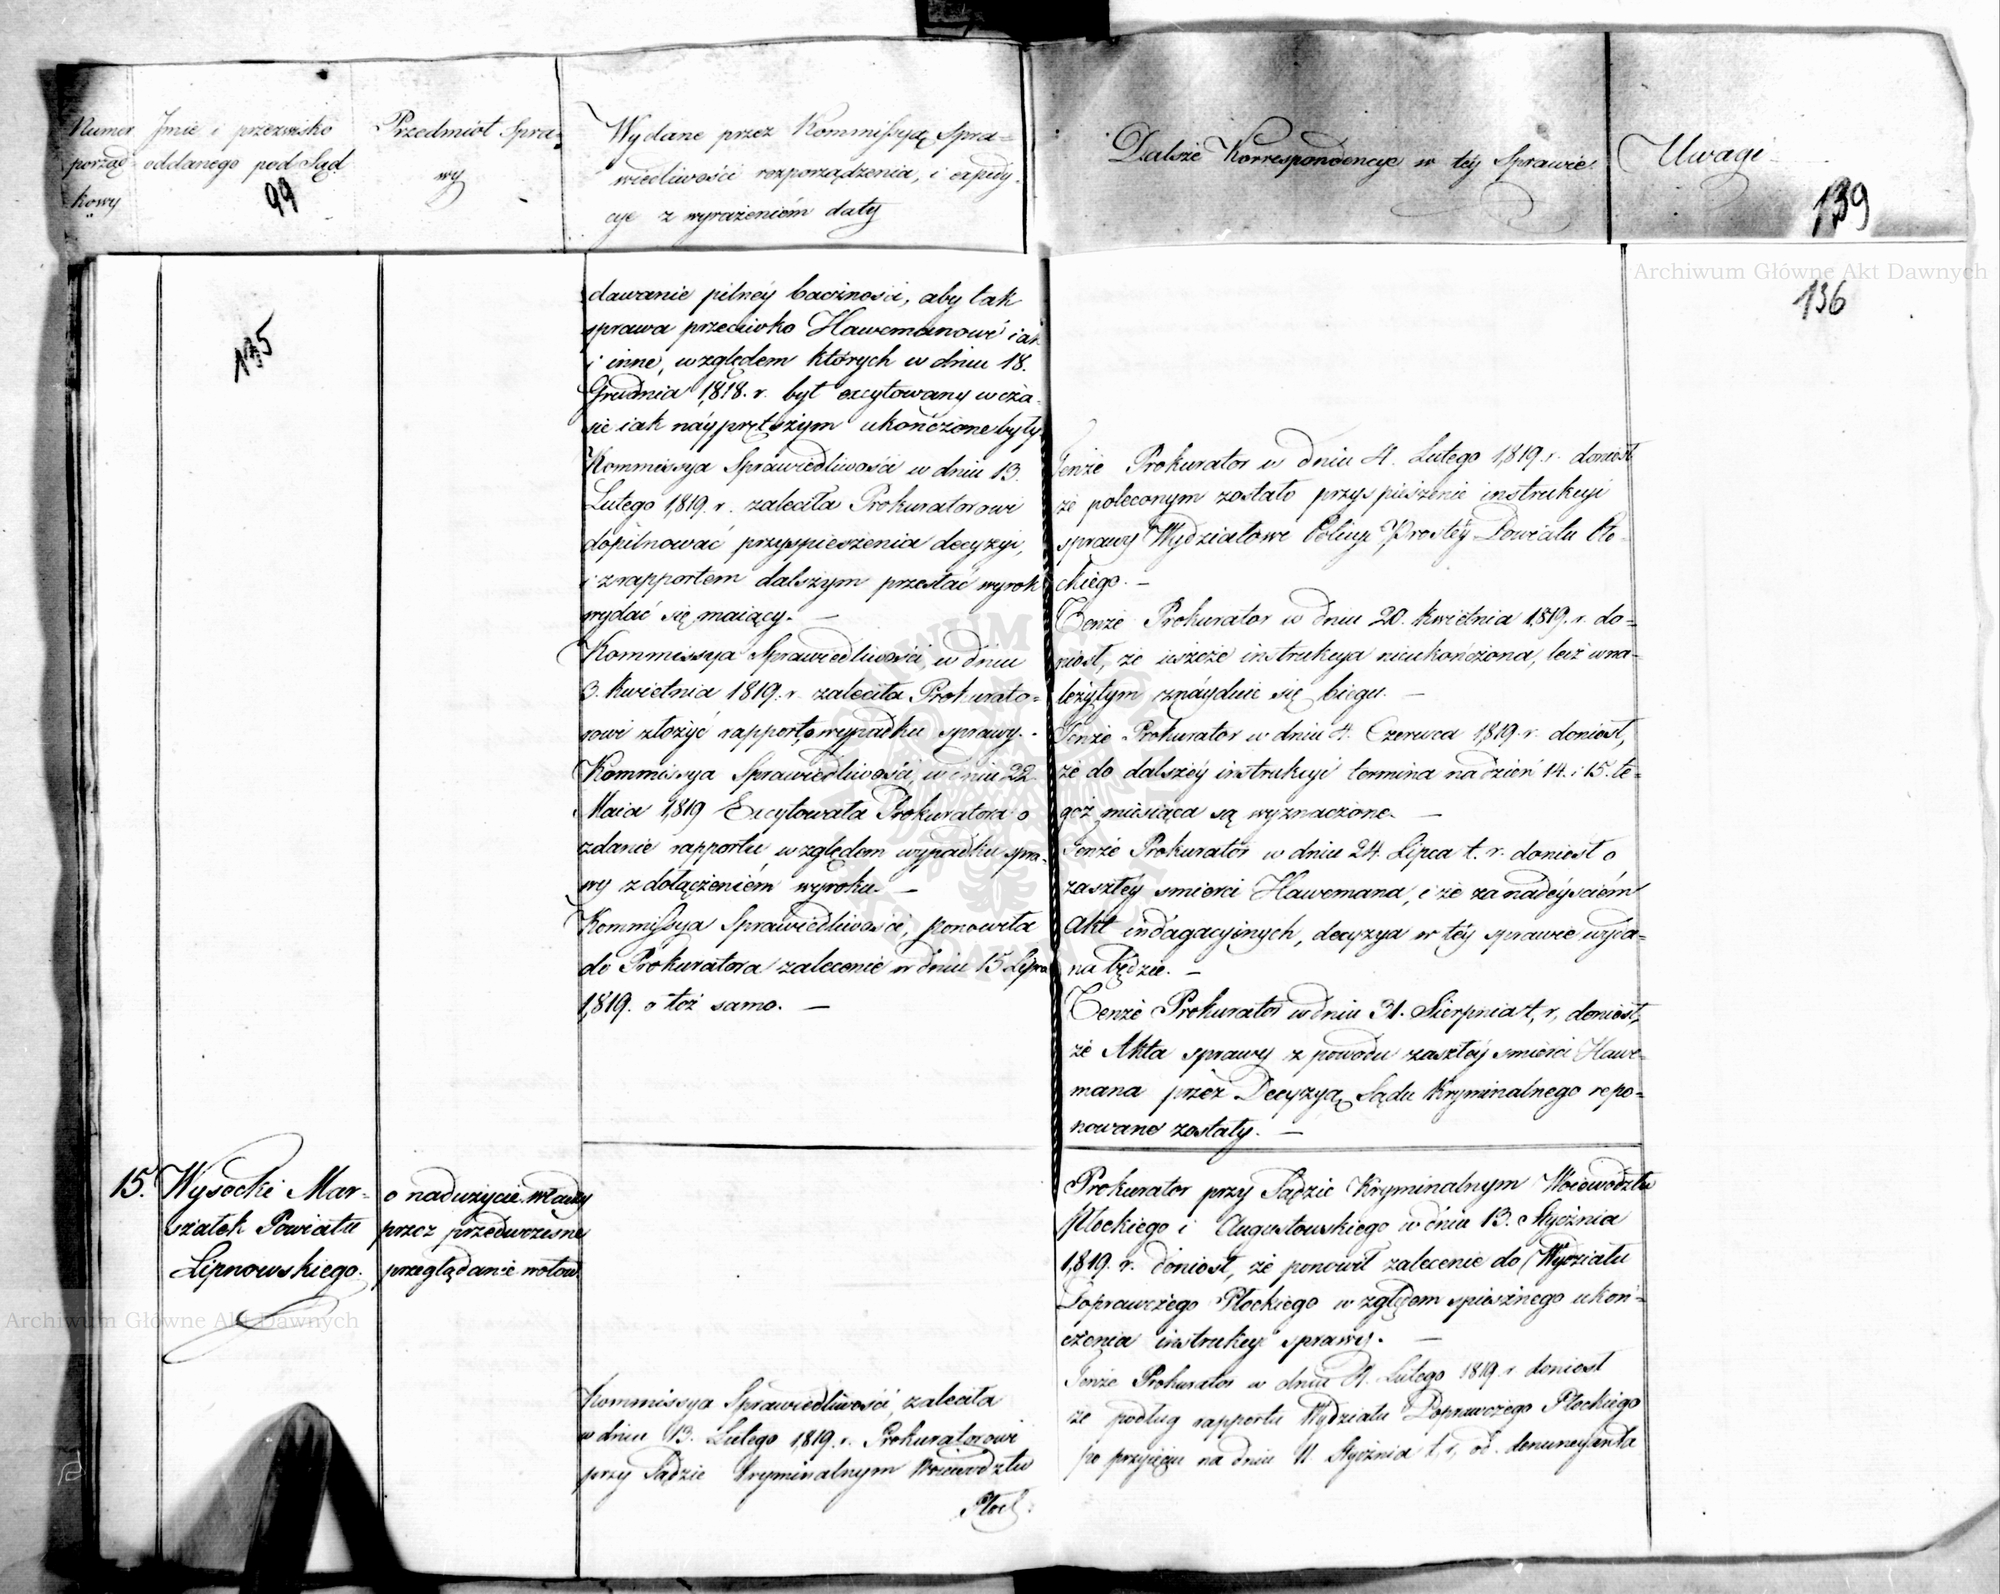 Numer
porząd-
kowy
Jmie i przezwisko
oddanego pod Sąd
99
Przedmiot Spra-
wy
Wydane przez Kommissyą Spra-
wiedliwości rozporządzenia, i expedy-
cye z wyrażeniem daty
Dalsze Korrespondencye w téy Sprawie.
Uwagi
139
136
115
dawanie pilnéy baczności, aby tak
sprawa przeciwko Hawemanowi iak
i inne, względem których w dniu 18.
Grudnia 1818. r. był excytowany w cza-
sie iak nayprętszym ukończone były
Kommissya Sprawiedliwości w dniu 13.
Lutego 1819. r. zaleciła Prokuratorowi
dopilnować przyspieszenia decyzyi,
i z rapportem dalszym przesłać wyrok
wydać się maiący. —
Kommissya Sprawiedliwości w dniu
3. Kwietnia 1819. r. zaleciła Prokurato-
rowi złożyć rapport o wypadku sprawy. -
Kommissya Sprawiedliwości w dniu 22
Maia 1819 Excytowała Prokuratora o
zdanie rapportu względem wypadku spra-
wy z dołączeniém wyroku. —
Kommissya Sprawiedliwości, ponowiła
do Prokuratora zalecenie w dniu 15 Lipca
1819. o toż samo. —
Tenże Prokurator w dniu 4. Lutego 1819. r. doniósł
że poleconym zostało przyspieszenie instrukcyi
sprawy Wydziałowi Policyi Prostéy Powiatu Pło-
ckiego. —
Tenże Prokurator w dniu 20. Kwietnia 1819. r. do-
niósł, że ieszcze instrukcya nieukończona, lecz w na-
leżytym znayduie się biegu. —
Tenże Prokurator w dniu 4. Czerwca 1819. r. doniósł,
że do dalszéy instrukcyi termina na dzień 14. i 15. te-
goż miesiąca są wyznaczone. —
Tenże Prokurator w dniu 24. Lipca t. r. doniósł o
zaszłéy smierci Hawemana, i że za nadéyściém
Akt indagacyinych, decyzya w téy sprawie wyda-
na będzie. —
Tenże Prokurator w dniu 31. Sierpnia t. r. doniósł,
że Akta sprawy z powodu zaszłéy smierci Hawe-
mana przez Decyzyą Sądu Kryminalnego repo-
nowane zostały. —
15. Wysocki Mar-
szałek Powiatu
Lipnowskiego.
o nadużycie władzy
przez przedwczesne
przeglądanie wotów.
Kommissya Sprawiedliwości, zaleciła
w dniu 13. Lutego 1819. r. Prokuratorowi
przy Sądzie Kryminalnym Woiewództw
Płoc.
Prokurator przy Sądzie Kryminalnym Woiewództw
Płockiego i Augustowskiego w dniu 13. Stycznia
1819. r. doniósł, że ponowił zalecenie do Wydziału
Poprawczego Płockiego względem spiesznego ukoń-
czenia instrukcyi sprawy. —
Tenże Prokurator w dniu 4. Lutego 1819. r. doniósł
że podług rapportu Wydziału Poprawczego Płockiego
po przyięciu na dniu 11 Stycznia t. r. od denuncyanta
Archiwum Główne Akt Dawnych
Archiwum Główne Akt Dawnych